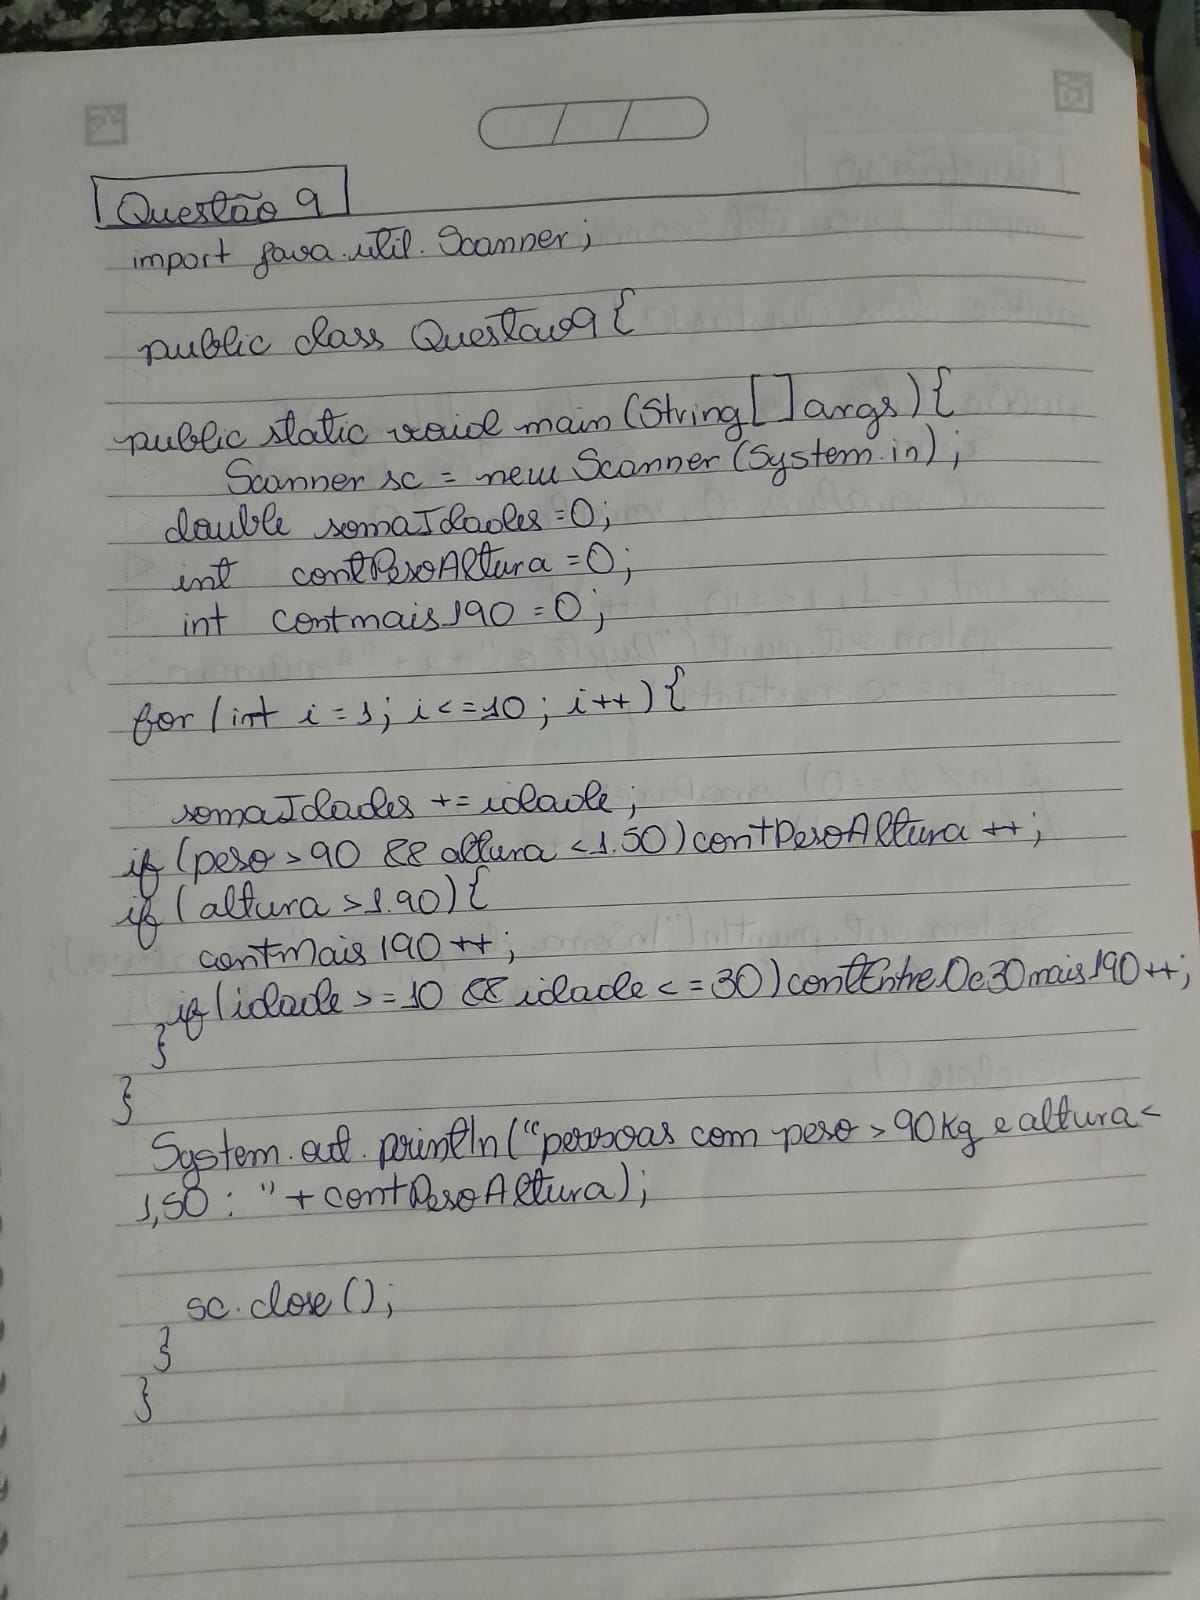 Questão 9
import java.util.Scanner;
public class Questao9{
public static void main (String[] args) {
Scanner sc = new Scanner (System.in);
double somaIdades = 0;
int contPesoAltura = 0;
int contmais190 = 0;
for (int i = 1; i <= 10; i++) {
somaIdades += idade;
if (peso > 90 && altura < 1.50) contPesoAltura ++;
if (altura > 1.90) {
contMais190 ++;
if (idade >= 10 && idade <= 30) contEntreDe30mais190 ++;
}
}
System.out.println("pessoas com peso > 90Kg e altura <
1,50: " + contPesoAltura);
sc.close();
}
}